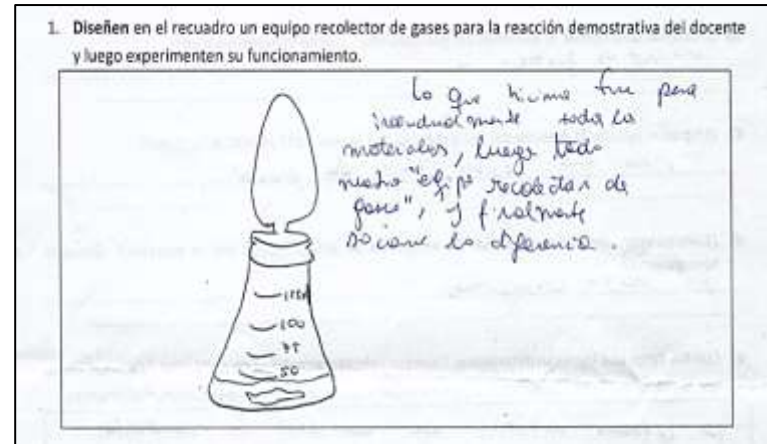 1. Diseñen en el recuadro un equipo recolector de gases para la reacción demostrativa del docente
y luego experimenten su funcionamiento.
Lo que hicimo fue pesa
todo lo
materiales, luego todo
nuestro "eqipo recolector de
gases", y finalmente
lo diferencia.
125
100
75
50